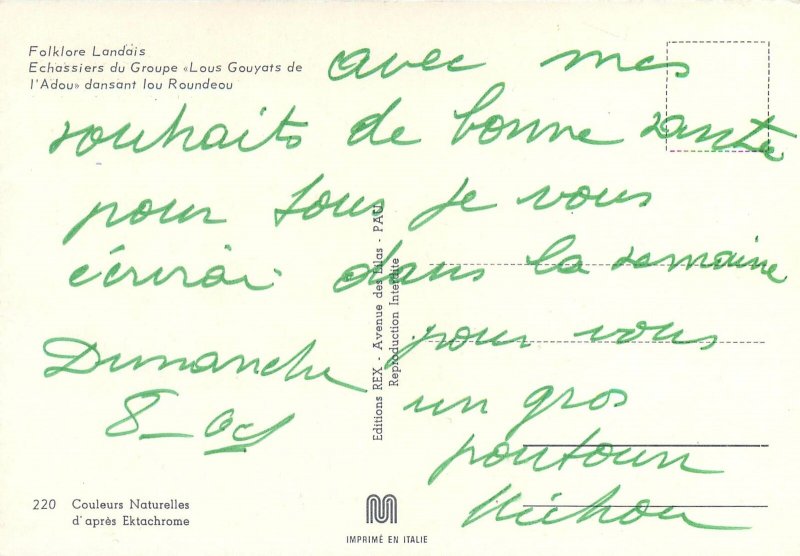 Folklore Landais
Echassiers du Groupe «Lous Gouyats de
l'Adou» dansant lou Roundeou
avec mes
souhaits de bonne santé
pour tous je vous
écrirai dans la semaine
Dimanche
8
pour vous
un gros
poutoun
Michou
Editions REX - Avenue des Lilas - PAU
Reproduction Interdite
220 Couleurs Naturelles
d'après Ektachrome
IMPRIMÉ EN ITALIE